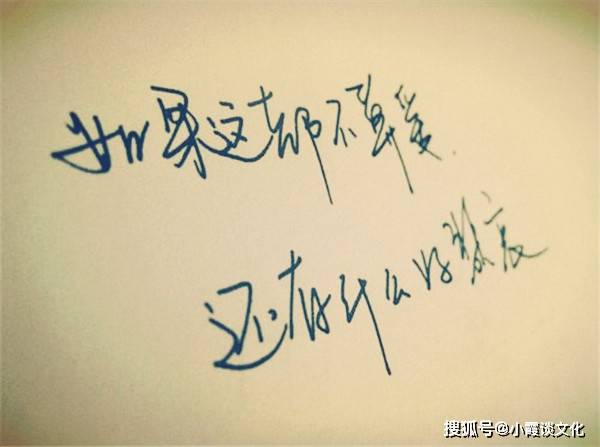 如果这都不算爱.
还有什么好悲哀
搜狐号@小霞谈文化